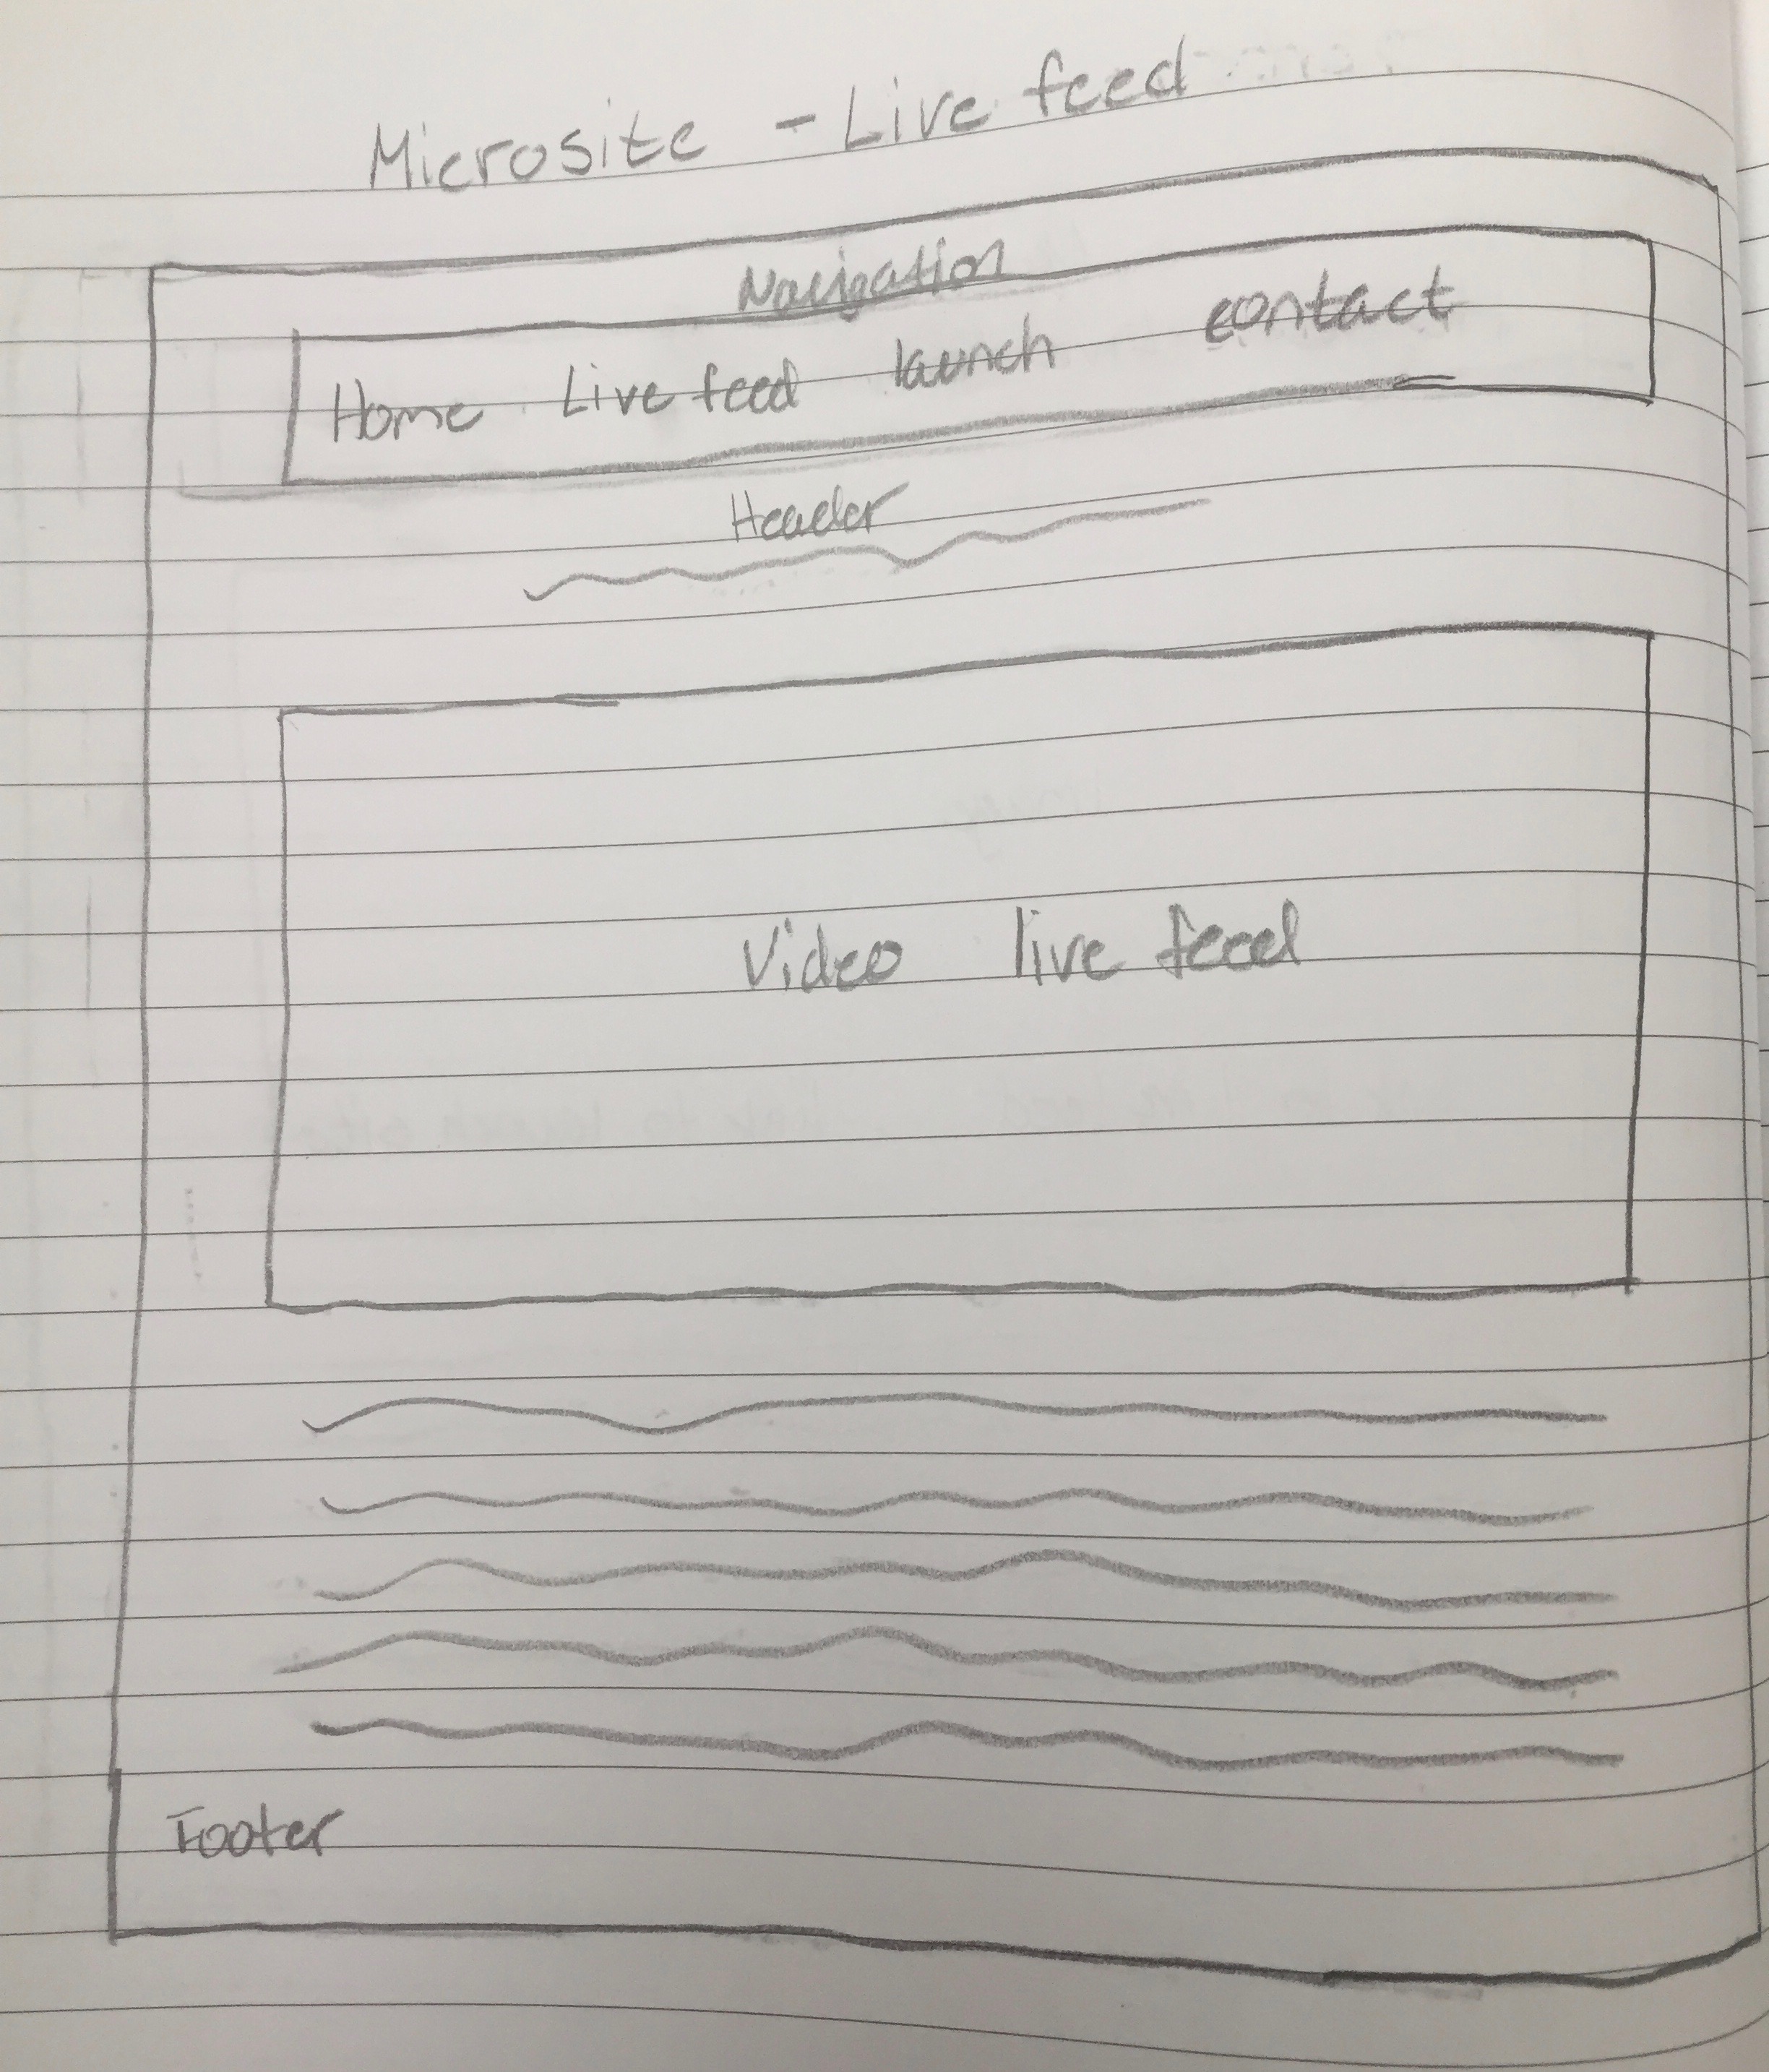 Microsite - Live feed
Navigation
Home Live feed launch contact
Header
Video live feed
Footer